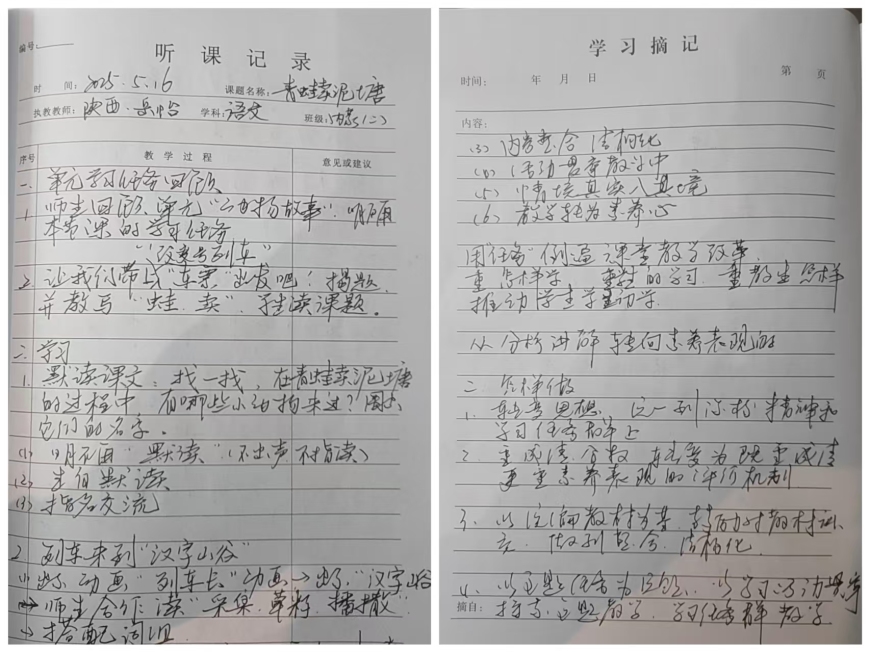 编号:
听课记录
时间: 2025.5.16 课题名称: 青蛙卖泥塘
执教教师: 陕西·岳怡 学科: 语文 班级: (二)
序号 教学过程 意见或建议
一、单元学习任务回顾
1 师生回顾单元“ 故事”，明确
本节课的学习任务
“ 列车”
2. 让我们带上“车票”出发吧！揭题，
并教写“蛙、卖”，学生读课题。
二、学习
1. 默读课文：找一找，在青蛙卖泥塘
的过程中，有哪些小动物来过？圈出
它们的名字。
(1) 明确“默读”(不出声不指读)
(2) 生自默读
(3) 指名交流
2 列车来到“汉字山谷”
(1) 出示动画“列车长”动画→出示“汉字山谷
→师生合作读“采集、草籽、播撒
→搭配词组
学习摘记
时间: 年 月 日 第 页
内容:
(3) 内容整合 结构化
(4) 活动贯穿教学中
(5) 情境真实入其境
(6) 教学转为素养心
用“任务”倒逼课堂教学改革
重怎样学 的学习 重教生怎样
推动学生学 学
从分析讲解转向素养表现的
二、怎样做
1、转变思想，统一到 精神和
学习任务群上
2、重成绩、分数 转变为既重成绩
更重素养表现的评价机制
3、以统编教材为本，努力对教材
，做到整合、结构化
4、以主题任务为 ，以学习活动
摘自: 探索主题 学习任务群教学